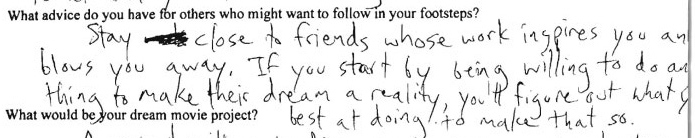 What advice do you have for others who might want to follow in your footsteps?
Stay close to friends whose work inspires you an
blows you away. If you start by being willing to do an
thing to make their dream a reality, you'll figure out what
What would be your dream movie project? best at doing to make that so.